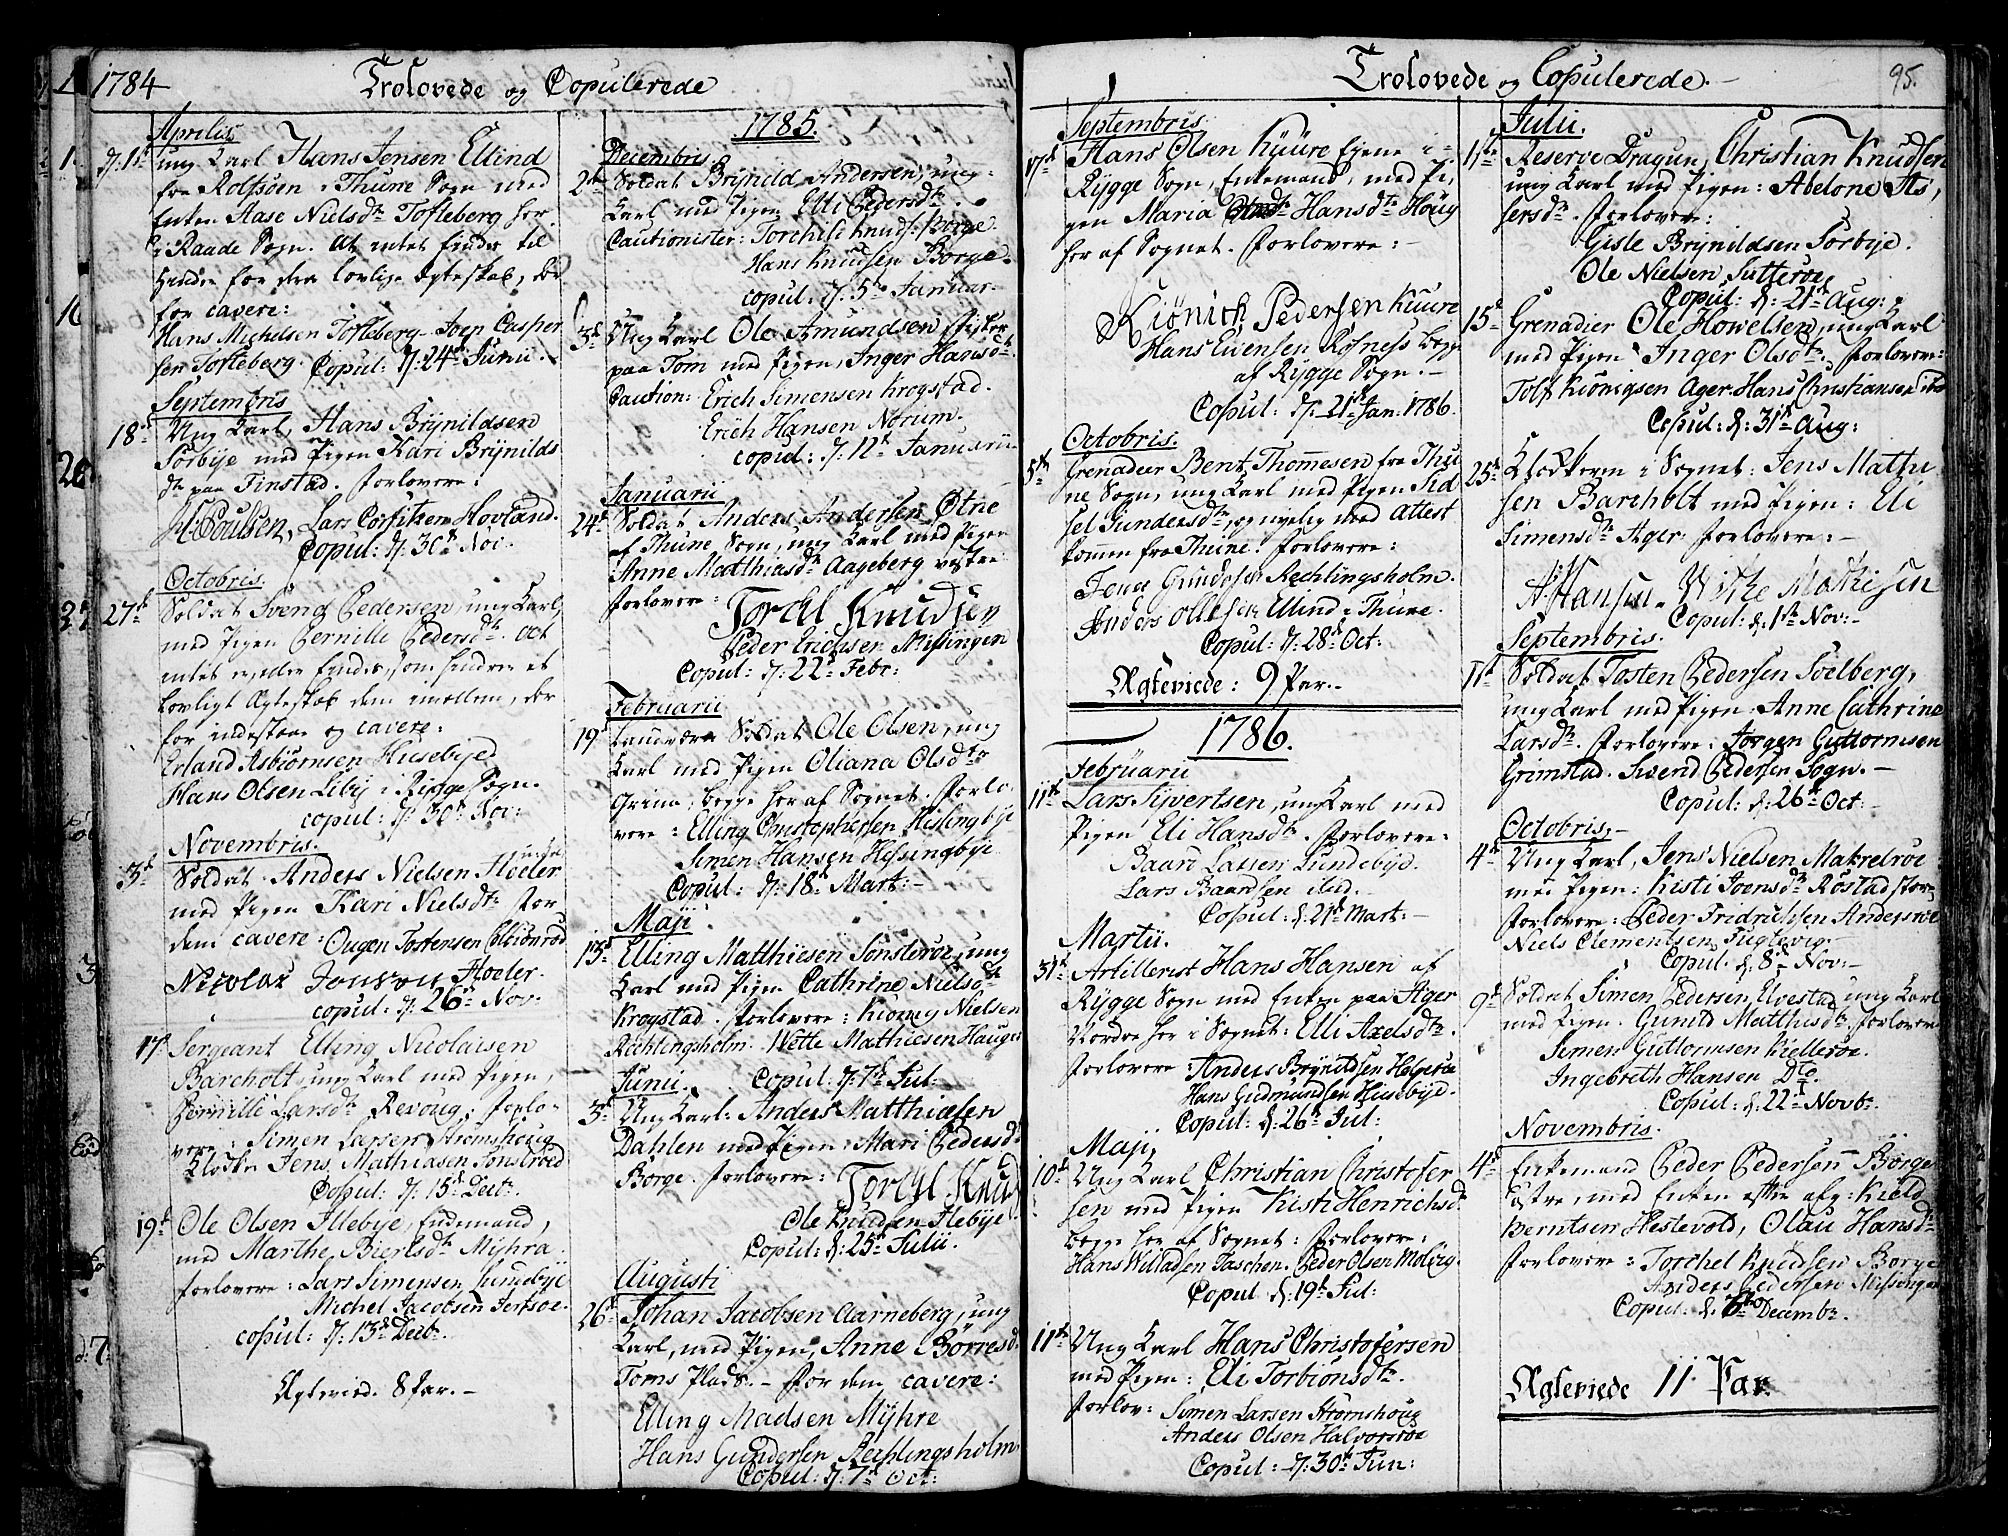 1784 Trolovede og Copulerede
Aprilis
d. 1t ung Karl Hans Jensen Ellind
fra Rolfsøen i Thune Sogn med
Enken Aase Nielsdtr Tofteberg her
i Raade Sogn. At intet findes til
Hinder for dera lovlige Egteskab, der
for cavere:
Hans Michelsen Tofteberg Joen Casper
sen Tofteberg. Copul: d. 24de Junii.
Septembris
18de Ung Karl, Hans Brÿnildsen
Sorbije med Pigen Kari Brÿnilds
dtr paa Tinstad. Forlovere:
H: Poulsen, Lars Corfitzen Hovland.
Copul: d: 30te Nov.
Octobris
27de Soldat Svend Pedersen ung Karl
med Pigen Pernille Pedersdtr. At
intet findes, som hindrer et
lovligt Ægteskab dem imellem, der
for indestaae og cavere:
Erland Asbiörnsen Husebÿe
Hans Olsen Libÿ i Rÿgge Sogn.
copul: d: 30te Nov:
Novembris.
3de Soldat Anders Nielsen Hoeler
med Pigen Kari Nielsdtr for
dem cavere: Ougen Tostensen
Nicolai Jonsen Hoeler.
copul: d: 26de Nov:
17. Sergeant Elling Nicolaisen
Barcholt, ung Karl med Pigen,
Pernille Larsdtr Revoug. Forlo-
vere: Simen Larsen Strömshoug
Klokker Jens Mathiasen Sonstrød
Copul: d: 15de Decbr.
19de Ole Olsen Illebÿe, Enkemand,
med Marthe Bierlsdtr Mÿhra.
Forlovere: Lars Simensen Lundebÿe
Michel Jacobsen Jertsoe.
copul: d: 13de Decbr.
Ægtevied. 8 Par.
1785.
Decembris
2de Soldat Brÿnild Andersen, ung
Karl med Pigen Elli Pedersdtr.
Cautionister: Torchili Knuds: Borge.
Hans Knudsen Borge.
copul: d: 5te Januar.
3de Ung Karl Ole Amundsen
paa Tom med Pigen, Inger Hansdtr.
Caution: Erich Simensen Krogstad.
Erich Hansen Norum.
copul: d. 12te Januarii
Januarii
24de Soldat Anders Andersen Øtne
af Thune Sogn, ung Karl med Pigen
Anne Matthiasdtr Aageberg vestre
Forlovere: Torchil Knudsen
Peder Erichsen Missingen
Copul: d: 22de Febr:
Februarii
19 Landværn Soldat Ole Olsen, ung
Karl med Pigen Oliana Olsdtr
Grime, begge her af Sognet. Forlo-
vere: Elling Christophersen Hislingbÿe
Simen Hansen Hissingbÿe
Copul: d: 18de Mart:
Maji
15de Elling Matthiesen Sonsteröe, ung
Karl med Pigen Cathrine Nielsdtr
Krogstad. Forlovere: Kiönig Nielsen
Rechlingsholm. Vette Mathiesen Hauger
Copul: d: 7de Jul:
Junii.
3de Ung Karl: Anders Matthiæsen
Dahlen med Pigen Mari Pedersdtr
Borge. Forlovere: Torchil Knud
Ole Knudsen Ilebÿe.
Copul: d: 25de Julii.
Augusti
26de Johan Jacobsen Aarneberg, ung
Karl, med Pigen, Anne Börresd.
Toms Plads. For dem cavere:
Elling Madsen Mÿhre
Hans Gundersen Rechlingsholm
Copul: d: 7de Oct:
Trolovede og Copulerede. 95.
Septembris
17de Hans Olsen Kuure hjemme i
Rÿgge Sogn, Enkemand, med Pi-
gen Maria Hansdtr Houg
her af Sognet. Forlovere:
Kiönich Pedersen Kuure
Hans Evensen Rosness begge
af Rÿgge Sogn.
Copul: d: 21de Jan. 1786.
Octobris.
5te Grenadeer Bent Thommesen fra Thu
ne Sogn, ung Karl med Pigen Sid
sel Gundersdtr, nyelig med Attest
kommen fra Thune. Forlovere:
Jens Gundersen Rechlingsholm.
Anders Ollesen Ellind i Thune.
Copul: d: 28de Oct:
Ægteviede: 9 Par.
1786.
Februarii
11te Lars Sijvertsen, ung Karl med
Pigen Eli Hansdtr. Forlovere:
Baard Larsen Lundebÿe.
Lars Baardsen ibid.
Copul: d: 21de Mart:
Martii.
31te Artillerist Hans Hansen af
Rÿgge Sogn med Enken paa Ager
Nordre her i Sognet: Elli Axelsdtr.
Forlovere: Anders Brÿnildsen
Hans Gudmundsen Husebÿe.
Copul: d: 26de Jul:
Maji,
10de Ung Karl Christian Christofer
sen med Pigen Kisti Henrichsd.
begge her af Sognet: Forlovere:
Hans Willadsen Taschen. Peder Olsen Molvig.
Copul d: 19de Jul:
11te Ung Karl Hans Christofersen
med Pigen: Eli Torbiönsdtr.
Forlov: Simen Larsen Strömshoug
Anders Olsen Halvorsröe
Copul: d: 30te Jun:
Julii.
11te Reserve Dragun, Christian Knudsen
ung Karl med Pigen: Abelone As,
sersdtr. Forlovere:
Gisle Brÿnildsen Sorbÿe.
Ole Nielsen Sutteröe
Copul: d: 21de Aug:
15de Grenadier Ole Howelsen, ung Karl
med Pigen Inger Olsdtr. Forlovere:
Tolf Kiönigsen Ager. Hans Christiansen ibid
Copul: d: 31te Aug:
25de Klokkeren i Sognet: Jens Mathi
sen Barcholt med Pigen: Eli
Simensdtr Ager. Forlovere:
A. Hansen. Wetke Mathisen
Copul: d: 1te Nov:
Septembris.
11te Soldat Tosten Pedersen Solberg,
ung Karl med Pigen Anne Cathrine
Larsdtr. Forlovere: Jørgen Guttormsen
Grimstad. Svend Pedersen Sogn.
Copul: d: 26de Oct:
Octobris,
4de Ung Karl, Jens Nielsen Makrelröe
med Pigen: Kisti Joensdtr Röstad store
Forlovere: Peder Fridrichsen Andersröe
Niels Clementsen Fuglevig.
Copul: d: 8de Nov:
9de Soldat Simen Pedersen Elvestad ung Karl
med Pigen. Gunild Matthisdtr. Forlovere
Simen Guttormsen Kielleröe.
Ingebreth Hansen Dto
Copul: d: 22de Novb.
Novembris.
4de Enkemand Peder Pedersen Borge
østre, med Enken efter afg: Kield
Berntsen Hestevold, Olau Hansdtr
Forlovere: Torchel Knudsen Borge
Anders Pedersen Missingen
Copul: d. 6te Decembr.
Ægteviede 11 Par.